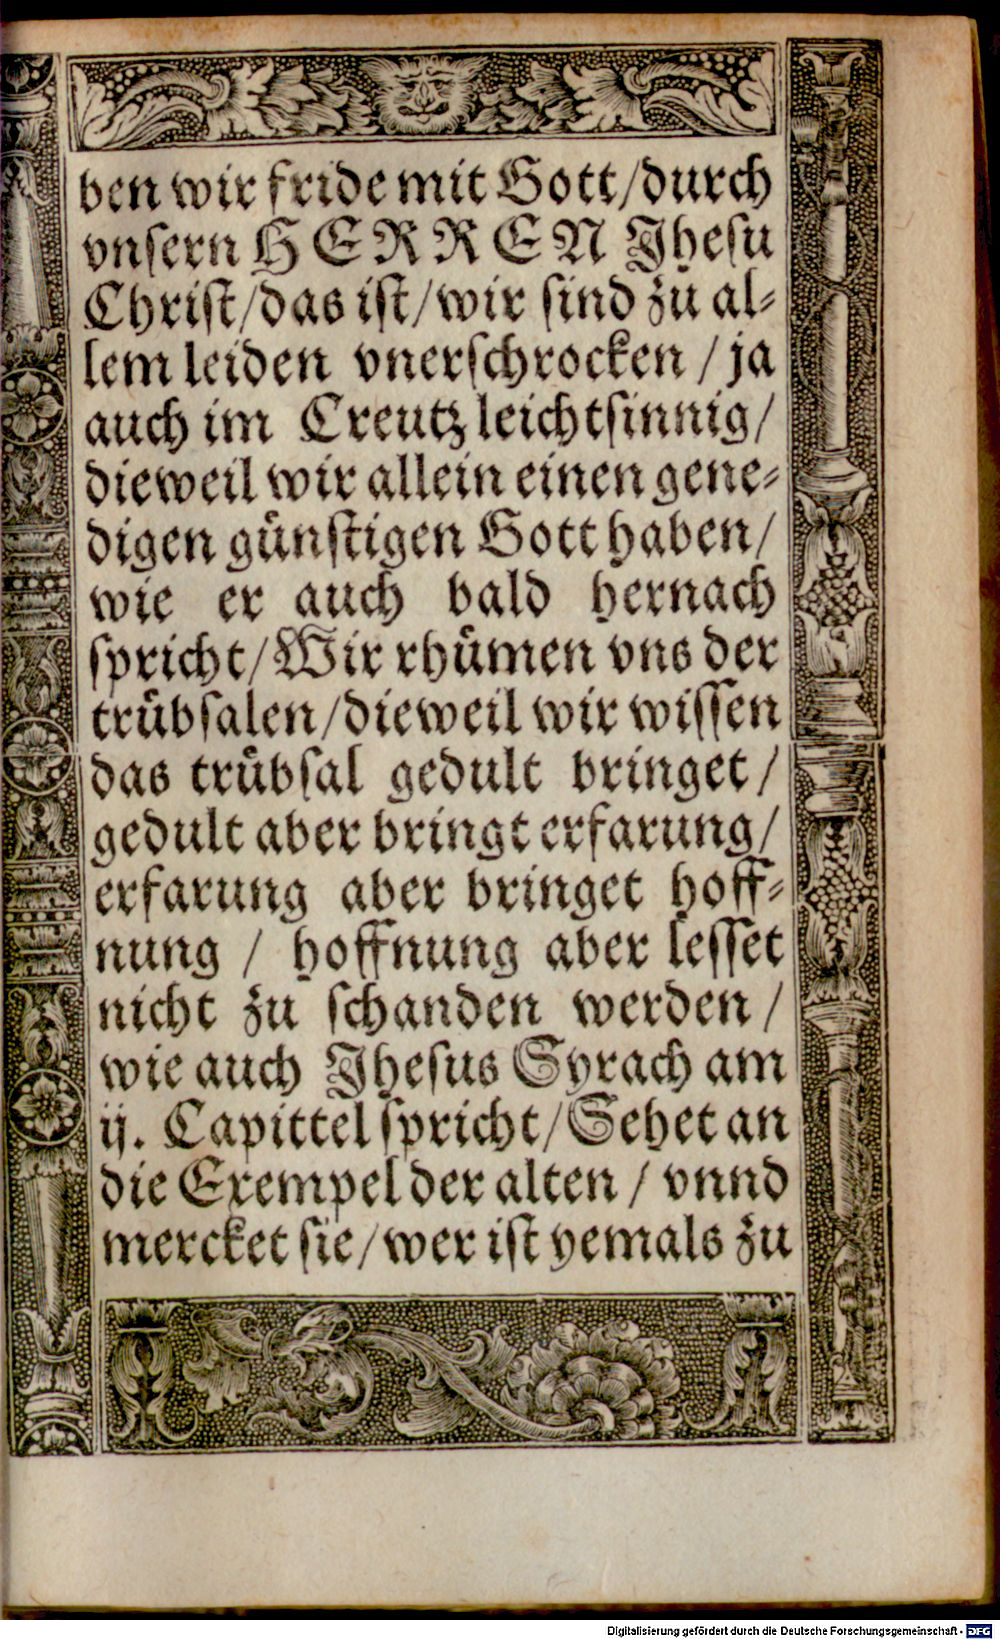 ben wir fride mit Gott/durch
vnsern HERREN Jhesu
Christ/das ist/wir sind zu al⸗
lem leiden vnerschrocken / ja
auch im Creutz leichtsinnig/
dieweil wir allein einen gene⸗
digen günstigen Gott haben/
wie er auch bald hernach
spricht/Wir rhümen vns der
trübsalen/dieweil wir wissen
das trübsal gedult bringet/
gedult aber bringt erfarung/
erfarung aber bringet hoff⸗
nung / hoffnung aber lesset
nicht zu schanden werden/
wie auch Jhesus Syrach am
ij. Capittel spricht/Sehet an
die Exempel der alten / vnnd
mercket sie/wer ist yemals zu
Digitalisierung gefördert durch die Deutsche Forschungsgemeinschaft - DFG